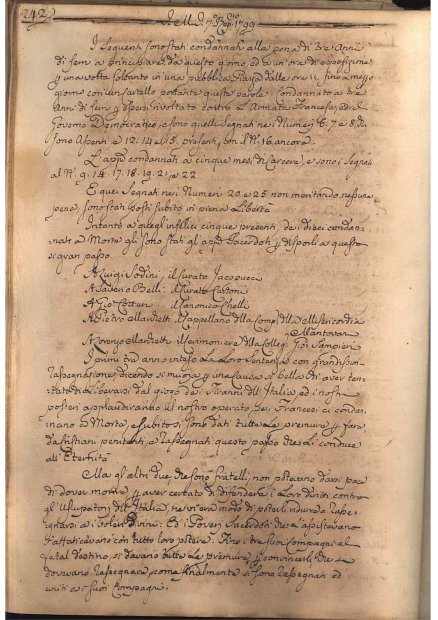 242
I seguenti sono stati condannati alla pena di tre Anni
di ferri a principiare da questo giorno, ed a un'ora di esposizione
p una volta soltanto in una pubblica Piazza dalle ore 11 fino a mezzo
giorno con un Cartello portante queste parole: Condannato a tre
Anni di ferri p essersi rivoltato contro l'Armata Francese, ed il
Governo Democratico, e sono quelli Segnati nei Numeri 6. 7. e 8. di
sono Assenti e 12. 14 e 15. presenti, con il N. 16 ancora.
condannati a Cinque mesi di Carcere, e sono i Segnati
al N. 9. 14. 17. 18. 19. 21. e 22
E quei Segnati nei Numeri 20 e 25. non meritando nessuna
pena, sono stati posti subito in piena Libertà
Intanto a quegli infelici cinque presenti, de i dieci condan-
nati a Morte gli sono stati gli Sacerdoti p disporli a questo
gran passo
A Luigi Sodini, il Curato Jacopucci
A Saverio Belli: il Curato
A Gio: il Canonico Chelli
A Pietro il Cappellano della Comp. della Misericordia
A Lorenzo il Cerimoniere della Colleg.
I primi tre anno inteso la Loro Sentenza con grandissima
rassegnazione, dicendo si muore p una Causa si bella di aver ten-
tato di Liberarsi dal giogo dei Tiranni dell'Italia, ed i nostri
posteri applaudiranno il nostro operato. I Francesi ci condan-
nano a Morte, e subito si sono dati tutta la premura p fare
da Cristiani penitenti, e rassegnati questo passo che li conduce
all'Eternità
Ma gli altri due, che sono fratelli, non potevano darsi pace
di dover morire p aver cercato di difendere i Loro diritti contro
gl'Usurpatori dell'Italia, ne vi era modo di poterli indurre a rasse-
gnarsi a i voleri Divini: E i Poveri Sacerdoti che l'assistevano
s'affaticavano con tutto loro potere. Fino i tre suoi Compagni al
fatal destino, si davano tutta la premura p convincerli che
dovevano rassegnarsi, come finalmente si sono rassegnati ed
uniti a i suoi Compagni.